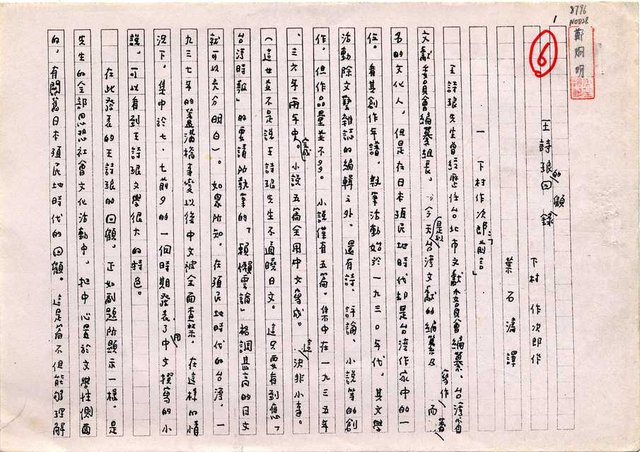 8796
N0028
鄭炯明
1
6
王詩琅的回顧錄
下村作次郎作
葉石濤譯
一 下村作次郎「前言」
王詩琅先生曾經歷任台北市文獻委員會編纂、台灣省
文獻委員會編纂組長，今天是以台灣文獻的編纂及寫作而著
名的文化人，但是在日本殖民地時代卻是台灣作家中的一
位。看其創作年譜，執筆活動始於一九三〇年代，其文學
活動除文藝雜誌的編輯之外，還有詩、評論、小說等的創
作，但作品量並不多。小說僅有五篇，集中在一九三五年
、三六年兩年中。小說五篇全用中文寫成。這決非小事。
（這並不是說王詩琅先生不通曉日文。這只要看到應「
台灣時報」的要請所執筆的「賴懶雲論」格調甚高的日文
就可以充分明白）。如眾所知，在殖民地時代的台灣，一
九三七年的蘆溝橋事變以後中文被全面查禁，在這樣的情
況下，集中於七・七前夕的一個時期發表了用中文撰寫的小
說，可以看到王詩琅文學很大的特色。
在此發表的王詩琅的回顧，正如副題所顯示一樣，是
先生的全部思想社會文化活動中，把中心置於文學性側面
的，有關舊日本殖民地時代的回顧。這是篇不但能夠理解